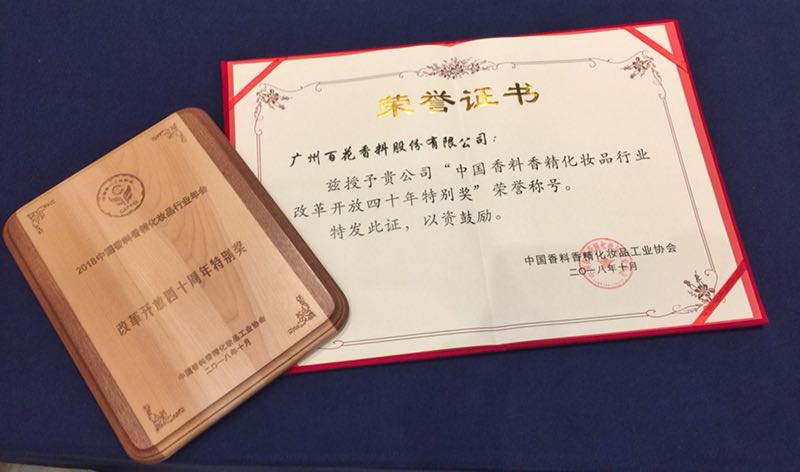 2018中国香料香精化妆品行业年会
改革开放四十周年特别奖
中国香料香精化妆品工业协会
二〇一八年十月
荣誉证书
广州百花香料股份有限公司：
兹授予贵公司“中国香料香精化妆品行业
改革开放四十年特别奖”荣誉称号。
特发此证，以资鼓励。
中国香料香精化妆品工业协会
二〇一八年十月